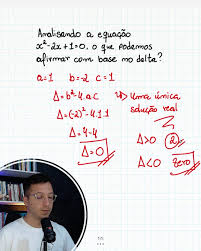 Analisando a equação
x²-2x+1=0. o que podemos
afirmar com base no delta?
a=1 b=-2 c=1
Δ=b²-4.a.c
Δ=(-2)²-4.1.1
Δ=4-4
Δ=0
↳ uma única
solução real
Δ>0 2
Δ<0 zero